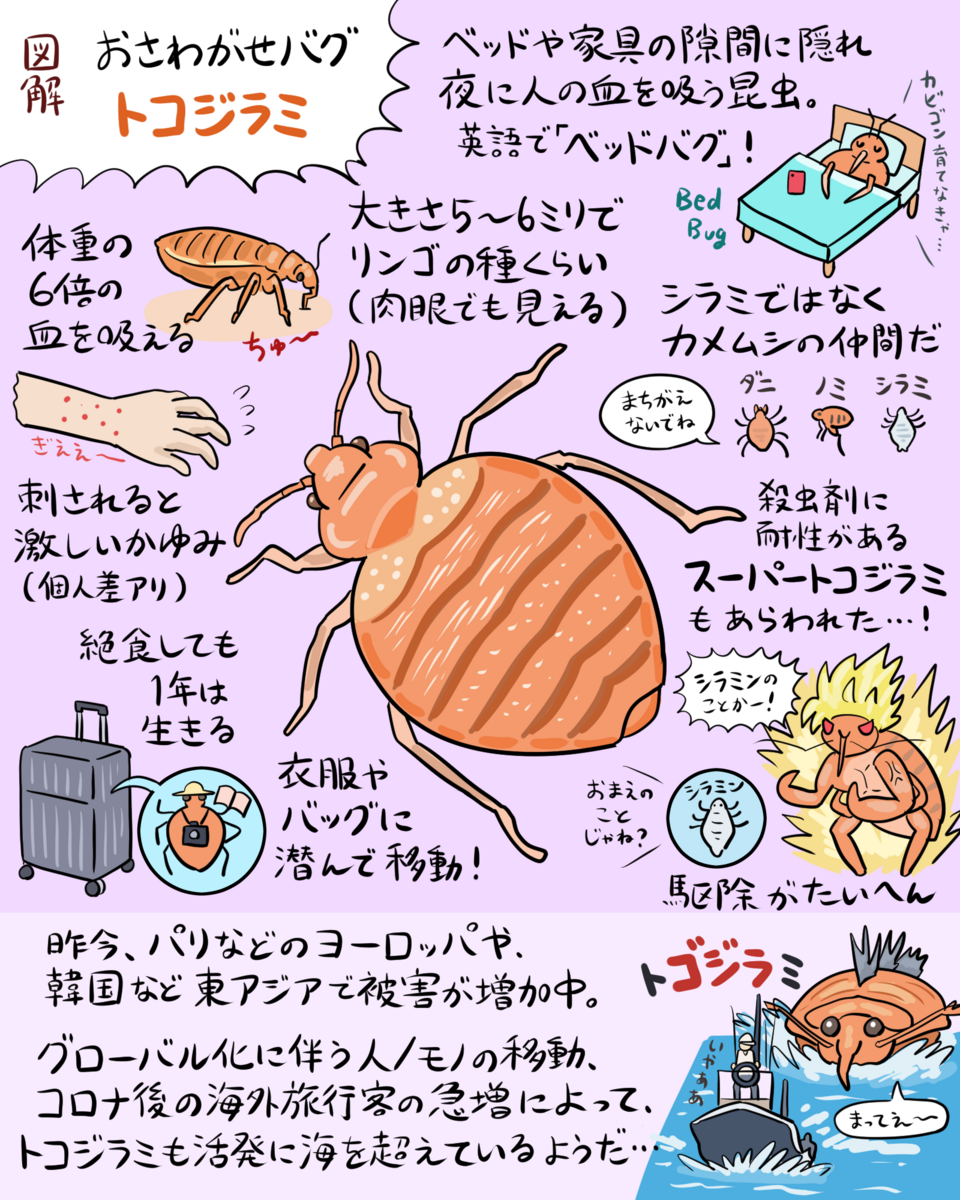 図解
おさわがせバグ
トコジラミ
ベッドや家具の隙間に隠れ
夜に人の血を吸う昆虫。
英語で「ベッドバグ」!
カビゴン育てなきゃ…
Bed
Bug
体重の
6倍の
血を吸える
ちゅ〜
大きさ5〜6ミリで
リンゴの種くらい
(肉眼でも見える)
シラミではなく
カメムシの仲間だ
まちがえ
ないでね
ダニ
ノミ
シラミ
ぎぇぇ〜
刺されると
激しいかゆみ
(個人差アリ)
殺虫剤に
耐性がある
スーパートコジラミ
もあらわれた…!
絶食しても
1年は
生きる
衣服や
バッグに
潜んで移動!
シラミンの
ことかー!
おまえの
こと
じゃね?
シラミン
駆除がたいへん
昨今、パリなどのヨーロッパや、
韓国など東アジアで被害が増加中。
グローバル化に伴う人/モノの移動、
コロナ後の海外旅行客の急増によって、
トコジラミも活発に海を超えているようだ…
トゴジラミ
いやああ
まってえ〜